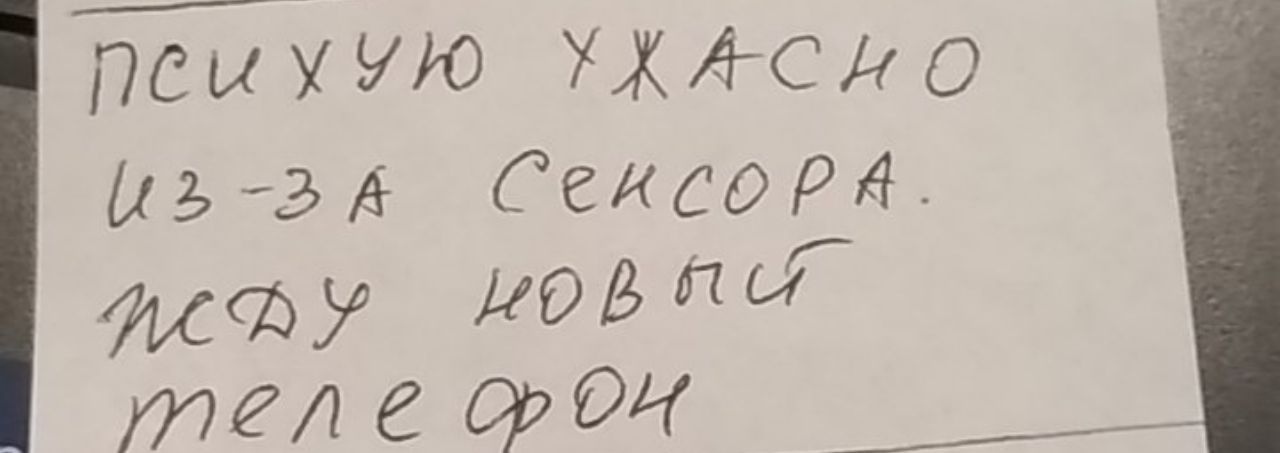 ПСИХУЮ УЖАСНО
ИЗ-ЗА СЕНСОРА.
ЖДУ НОВЫЙ
телефон